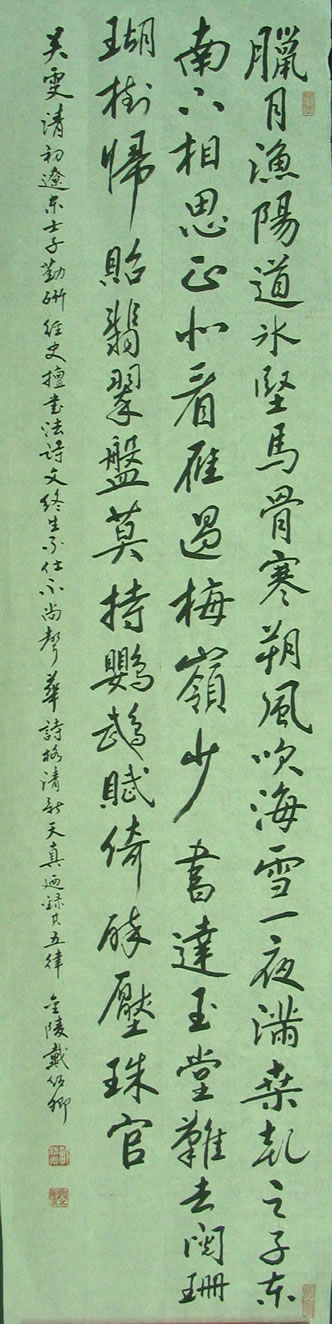 臘月漁陽道冰堅馬骨寒朔風吹海雪一夜滿桑乾之子東
南下相思正北看雁過梅嶺少書達玉堂難去閱珊
瑚樹歸貽翡翠盤莫持鸚鵡賦倚醉壓珠官
吳雯清初遼東士子勤研經史擅書法詩文終生不仕不尚聲華詩格清新天真迺録其五律 金陵戴卿